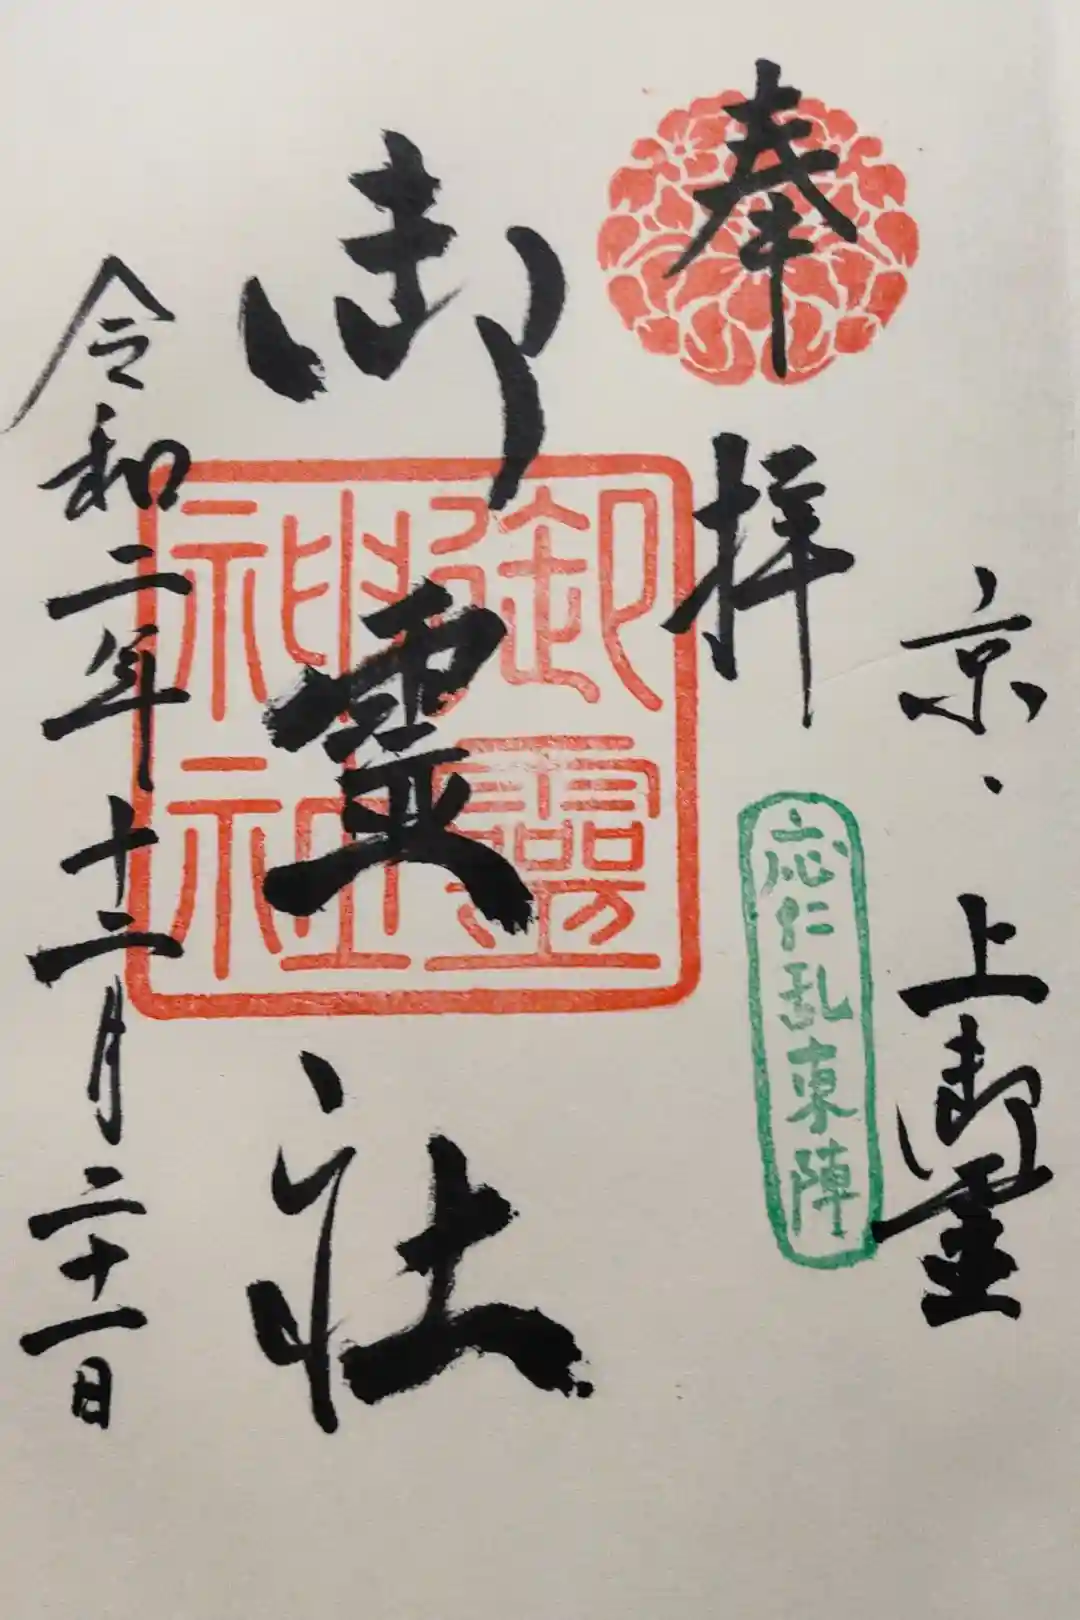 京・上御霊
奉拝
応仁乱東陣
御霊社
御霊神社
令和二年十二月二十一日